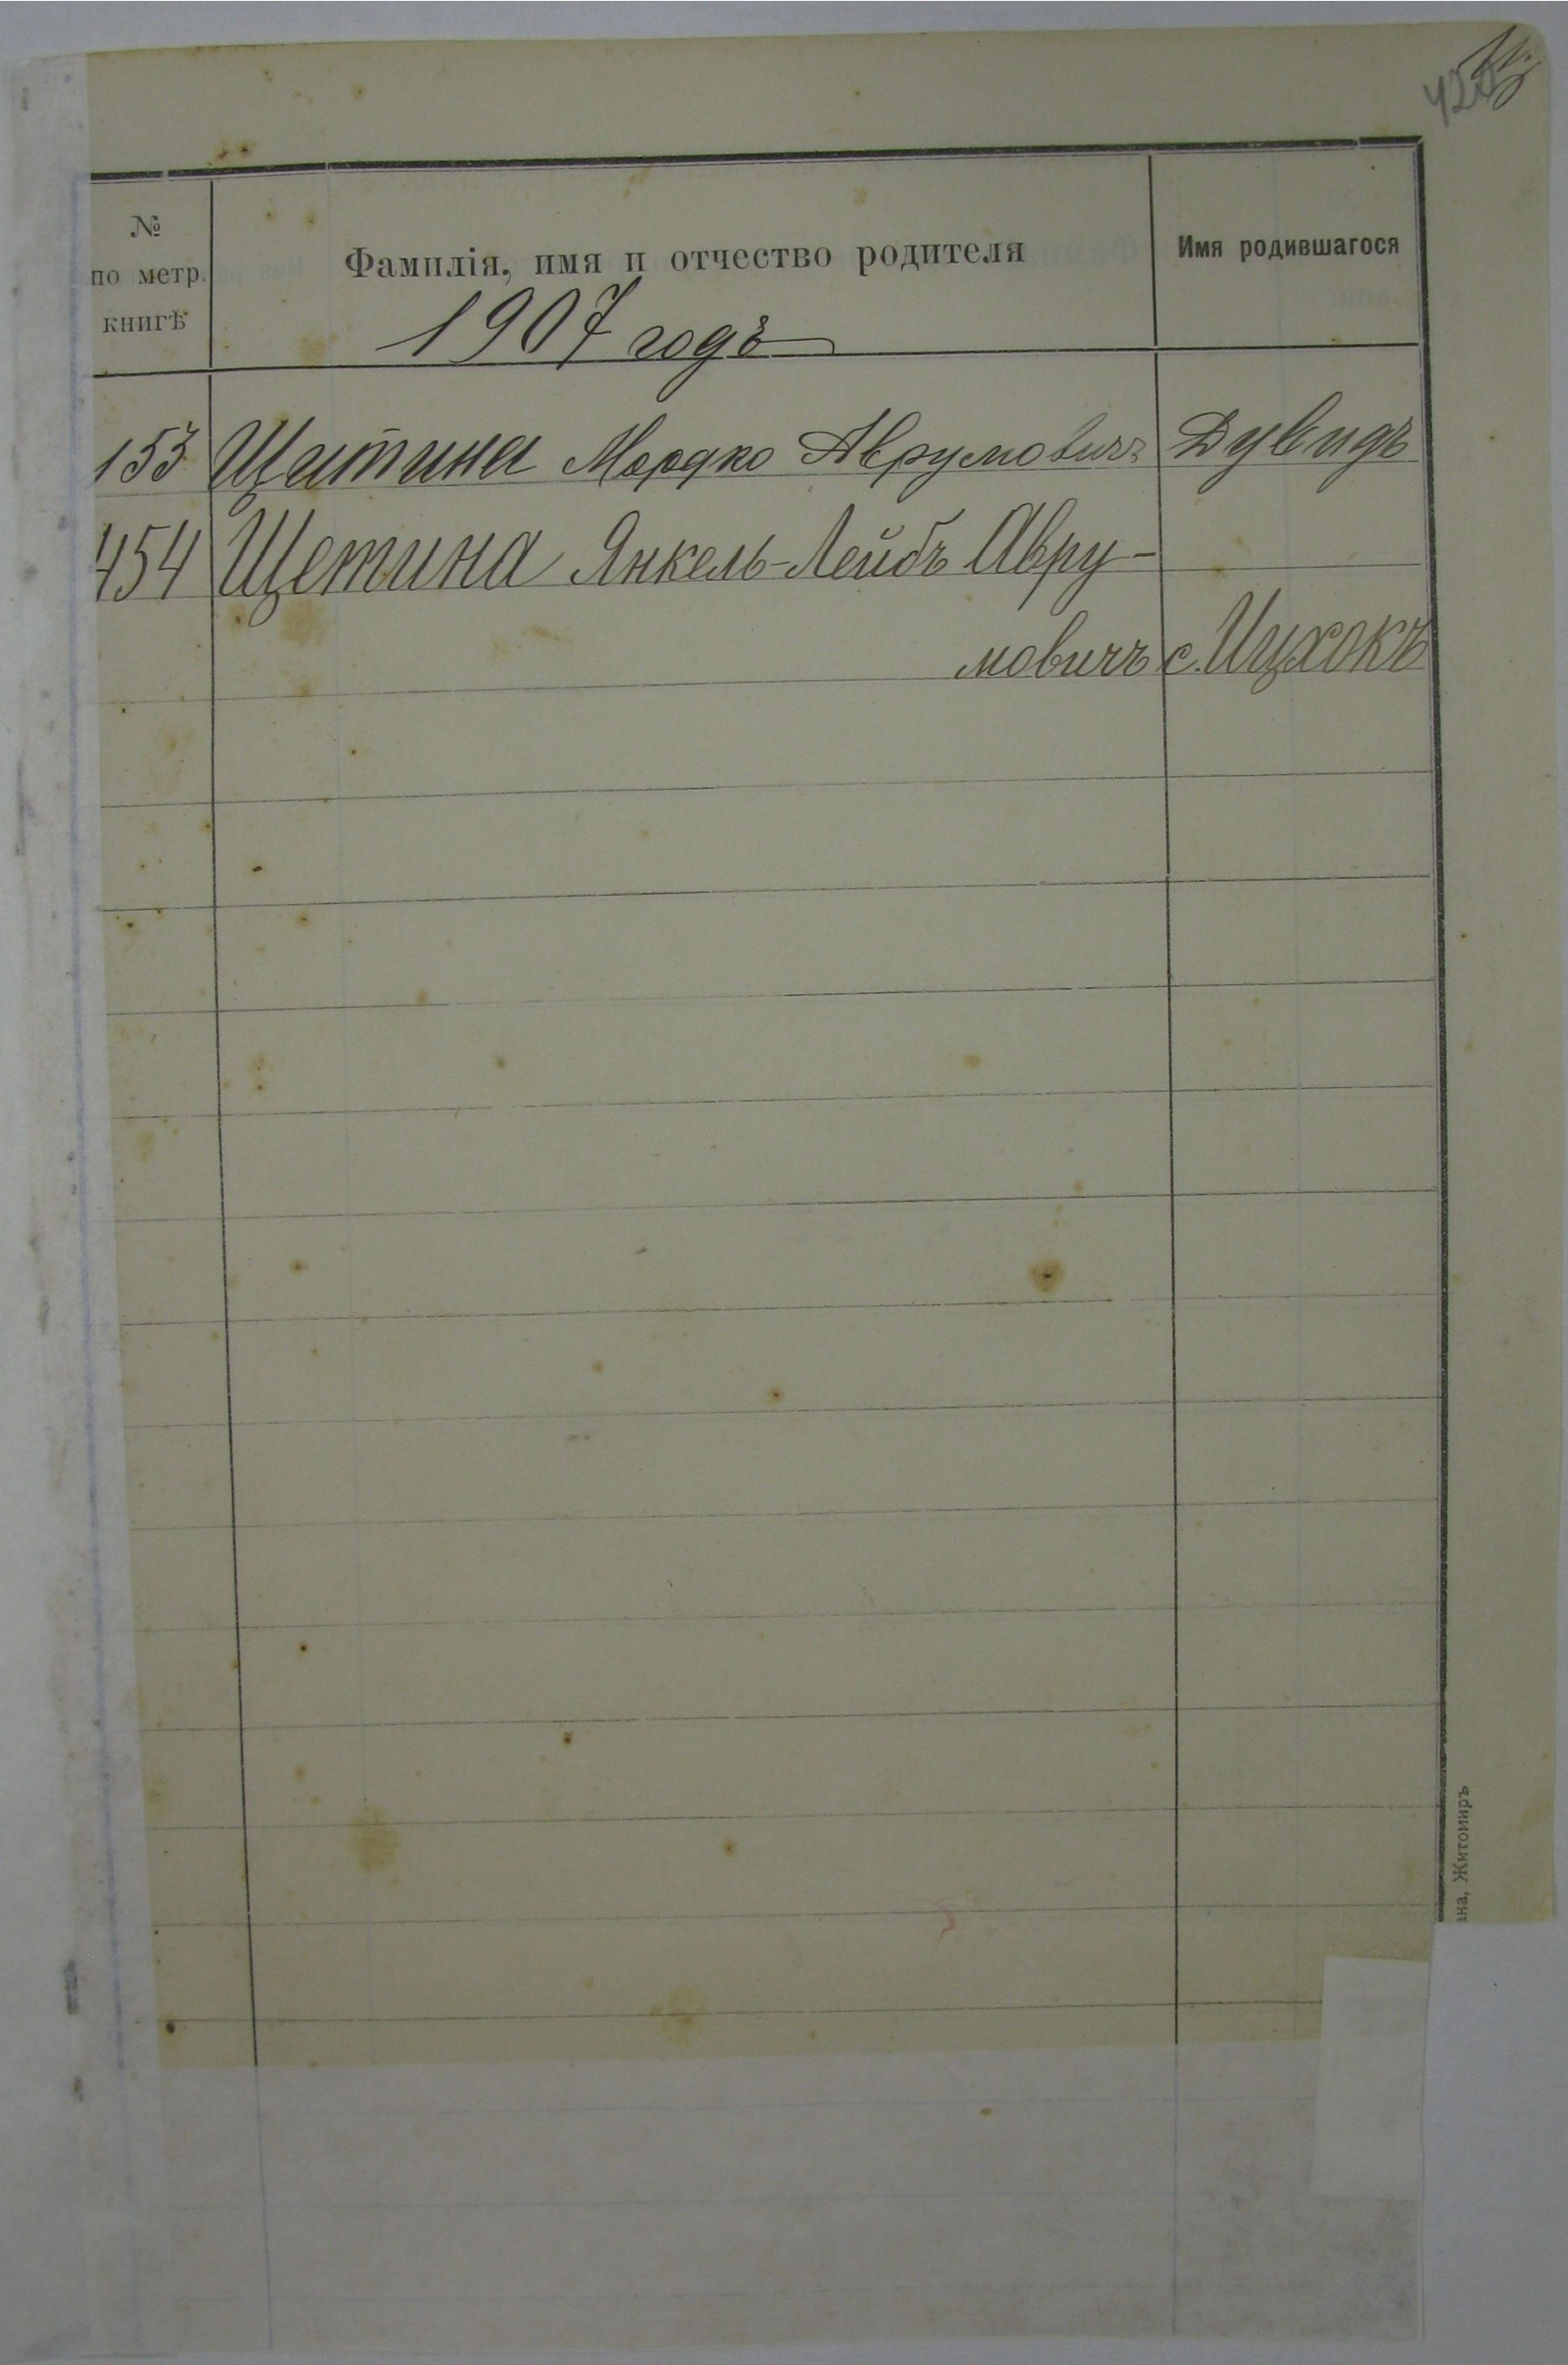 Щ
420
№
по метр.
книгѣ
Фамилія, имя и отчество родителя
Имя родившагося
1907 годъ
153 Щитина Мордко Аврумовичъ Дувидъ
454 Щетина Янкель-Лейбъ Авру-
мовичъ с. Ицхокъ
на, Житомиръ